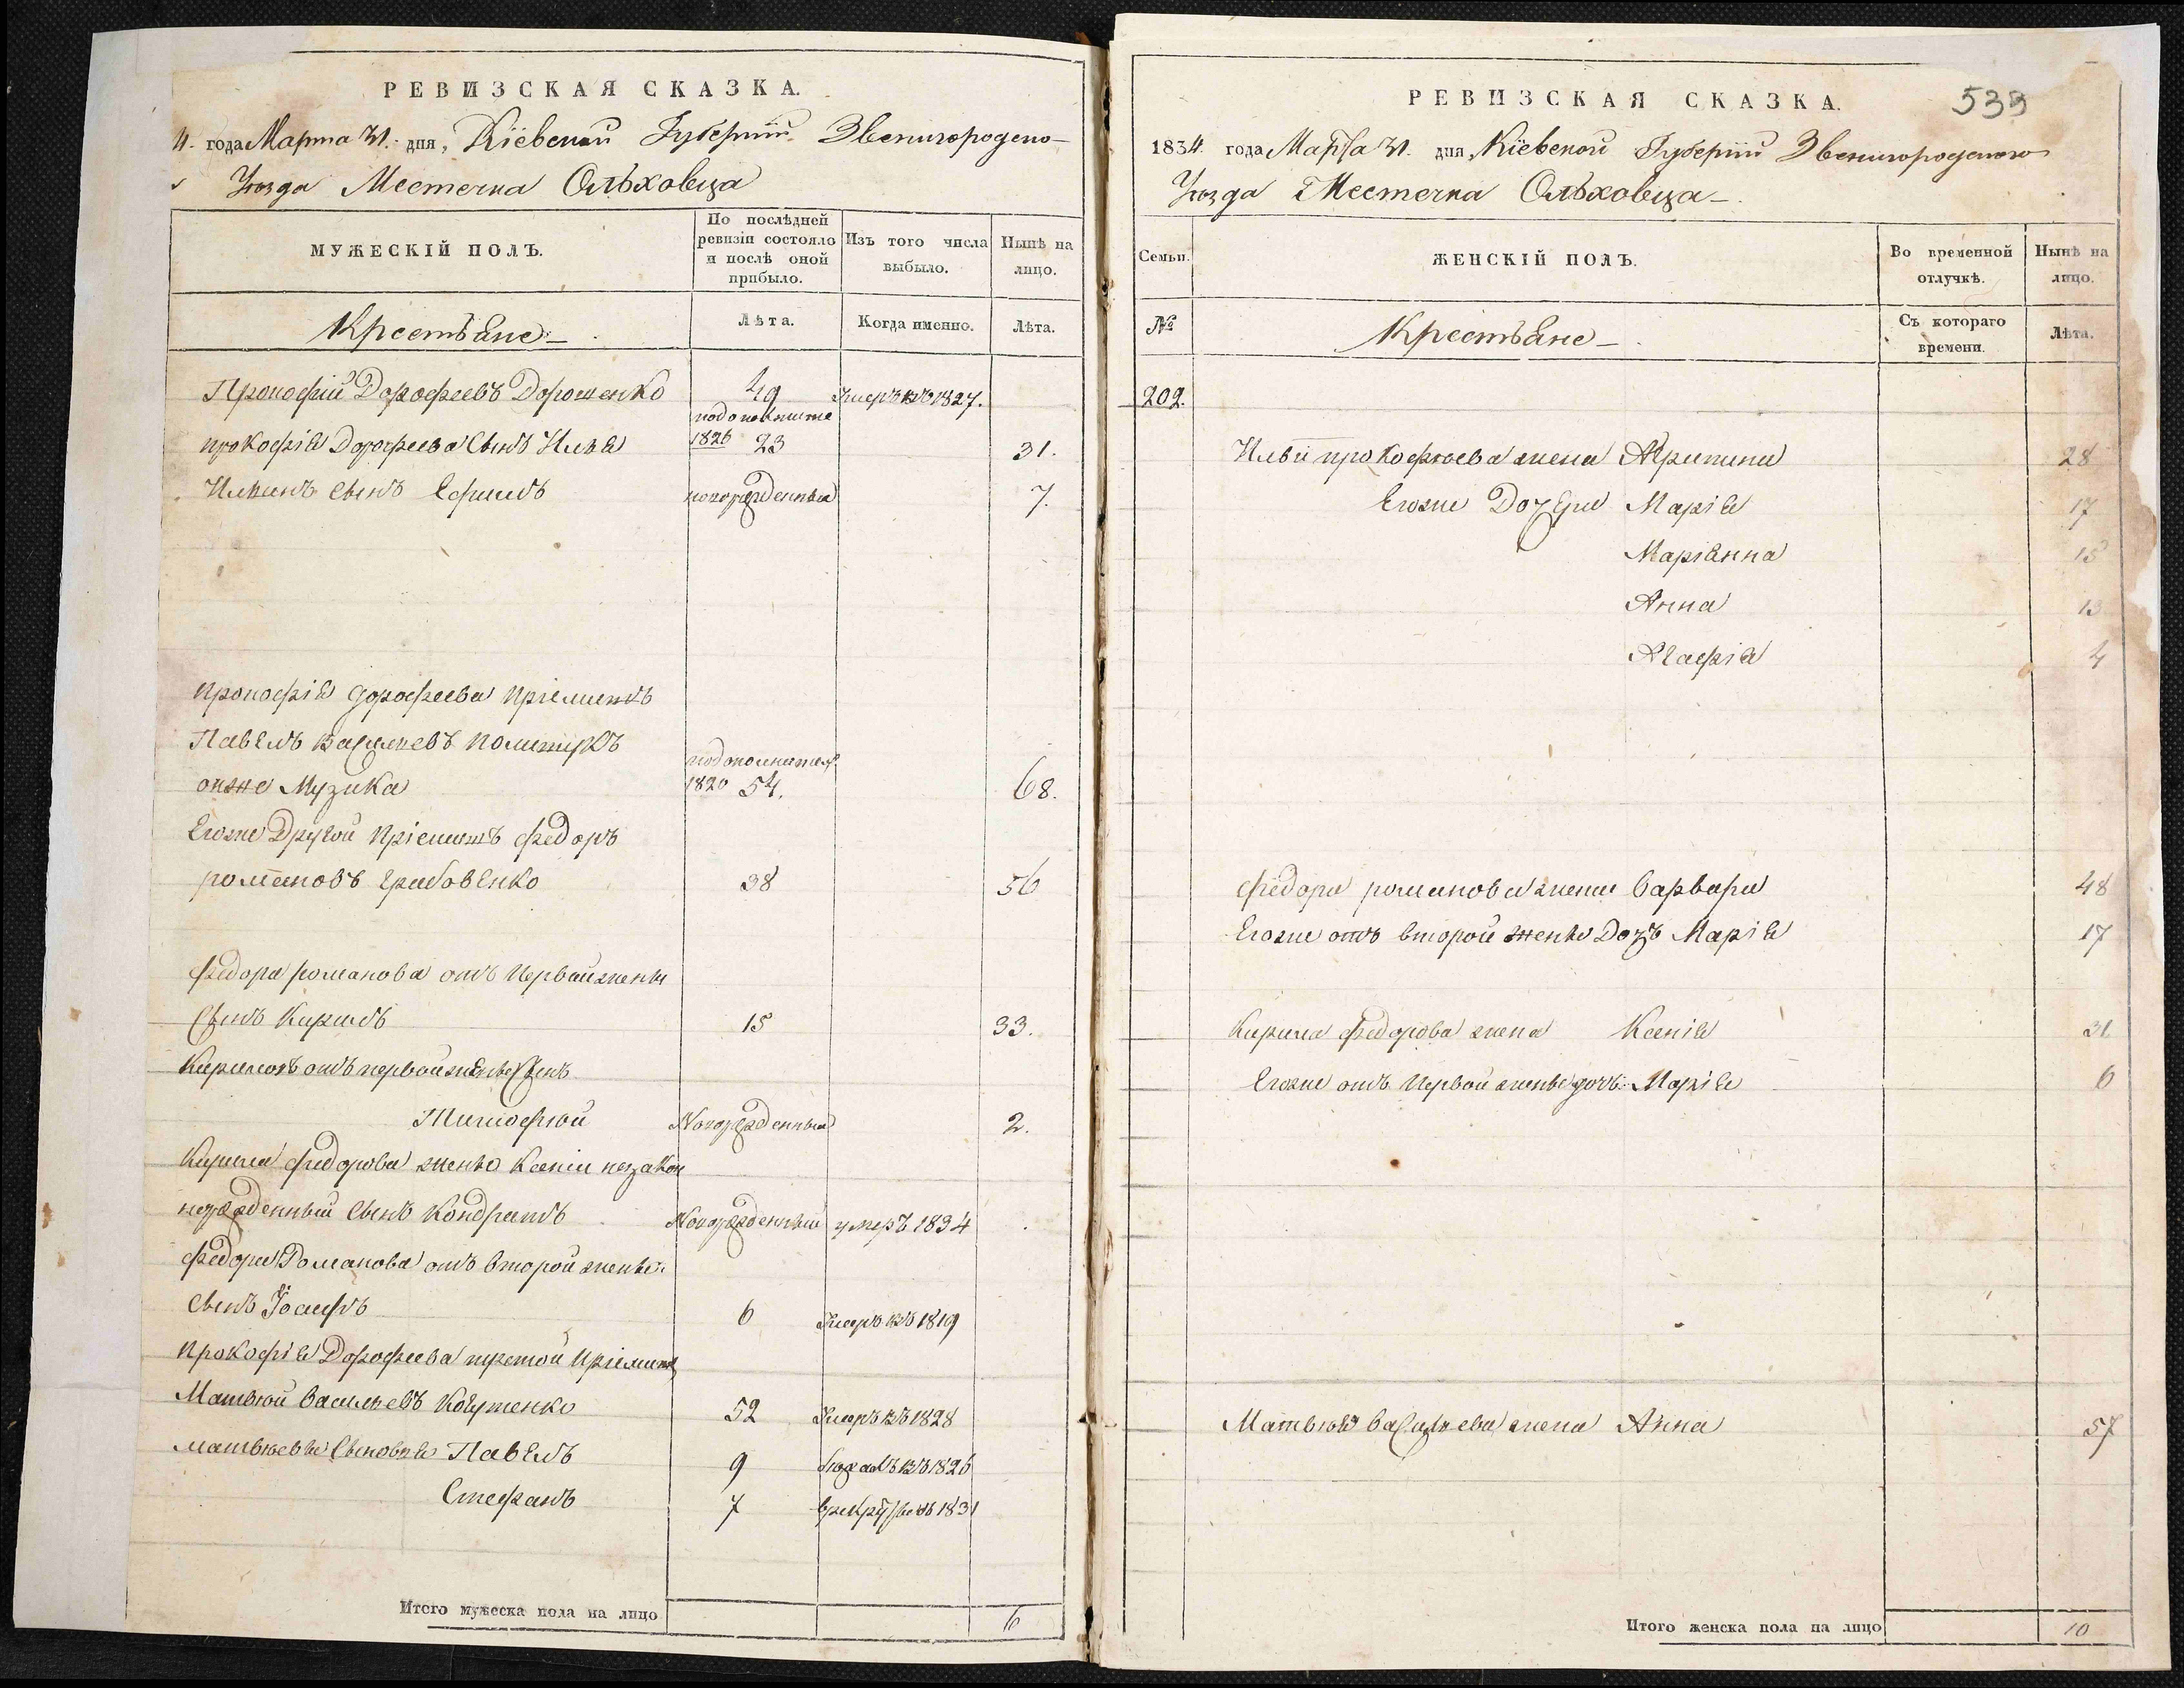 РЕВИЗСКАЯ СКАЗКА.
4. года Марта 31. дня, Кіевской Губерніи Звенигородско-
Уѣзда Местечка Ольховца
МУЖЕСКІЙ ПОЛЪ.
По послѣдней ревизіи состояло и послѣ оной прибыло.
Изъ того числа выбыло.
Нынѣ на лицо.
Крестьяне
Лѣта.
Когда именно.
Лѣта.
Прокофій Дорофеевъ Дорошенко 49 Умеръ въ 1827.
прокофія Дорофеева Сынъ Илья 1826 23 31.
Ильинъ Сынъ Ефимъ новорожденный 7.
Прокофія дорофеева пріемышъ
Павелъ Васильевъ
онже Музика 1820 54. 68.
Егоже Другой пріемышъ федоръ
романовъ грабовенко 38 56
Федора романова отъ первой жены
Сынъ Кирилъ 15 33.
Кириловъ отъ первой жены Сынъ
Тимофѣй Новорожденный 2.
Кирила федорова жены Ксеніи незакон
норожденный Сынъ Кондратъ Новорожденный умеръ 1834
Федора Романова отъ второй жены
Сынъ Іосифъ 6 Умеръ въ 1819
Прокофія Дорофеева третой пріемышъ
Матвѣй Васильевъ 52 Умеръ въ 1828
матвѣевы Сыновья Павелъ 9 въ 1826
Стефанъ 7 в рекруты въ 1831
Итого мужеска пола на лицо 6
РЕВИЗСКАЯ СКАЗКА.
533
1834. года Марта 31. дня, Кіевской Губерніи Звенигородского
Уѣзда Местечка Ольховца
Семьи.
ЖЕНСКІЙ ПОЛЪ.
Во временной отлучкѣ.
Нынѣ на лицо.
№
Крестьяне
Съ котораго времени.
Лѣта.
202.
Ильи прокофѣева жена Агрипина 28
Егоже Дочери Марія 17
Маріанна 15
Анна 13
Агафія 4
федора романова жена Варвара 48
Егоже отъ второй жены Дочь Марія 17
Кирила федорова жена Ксенія 31
Егоже отъ первой жены дочь Марія 6
Матвѣя Васильева жена Анна 57
Итого женска пола на лицо 10